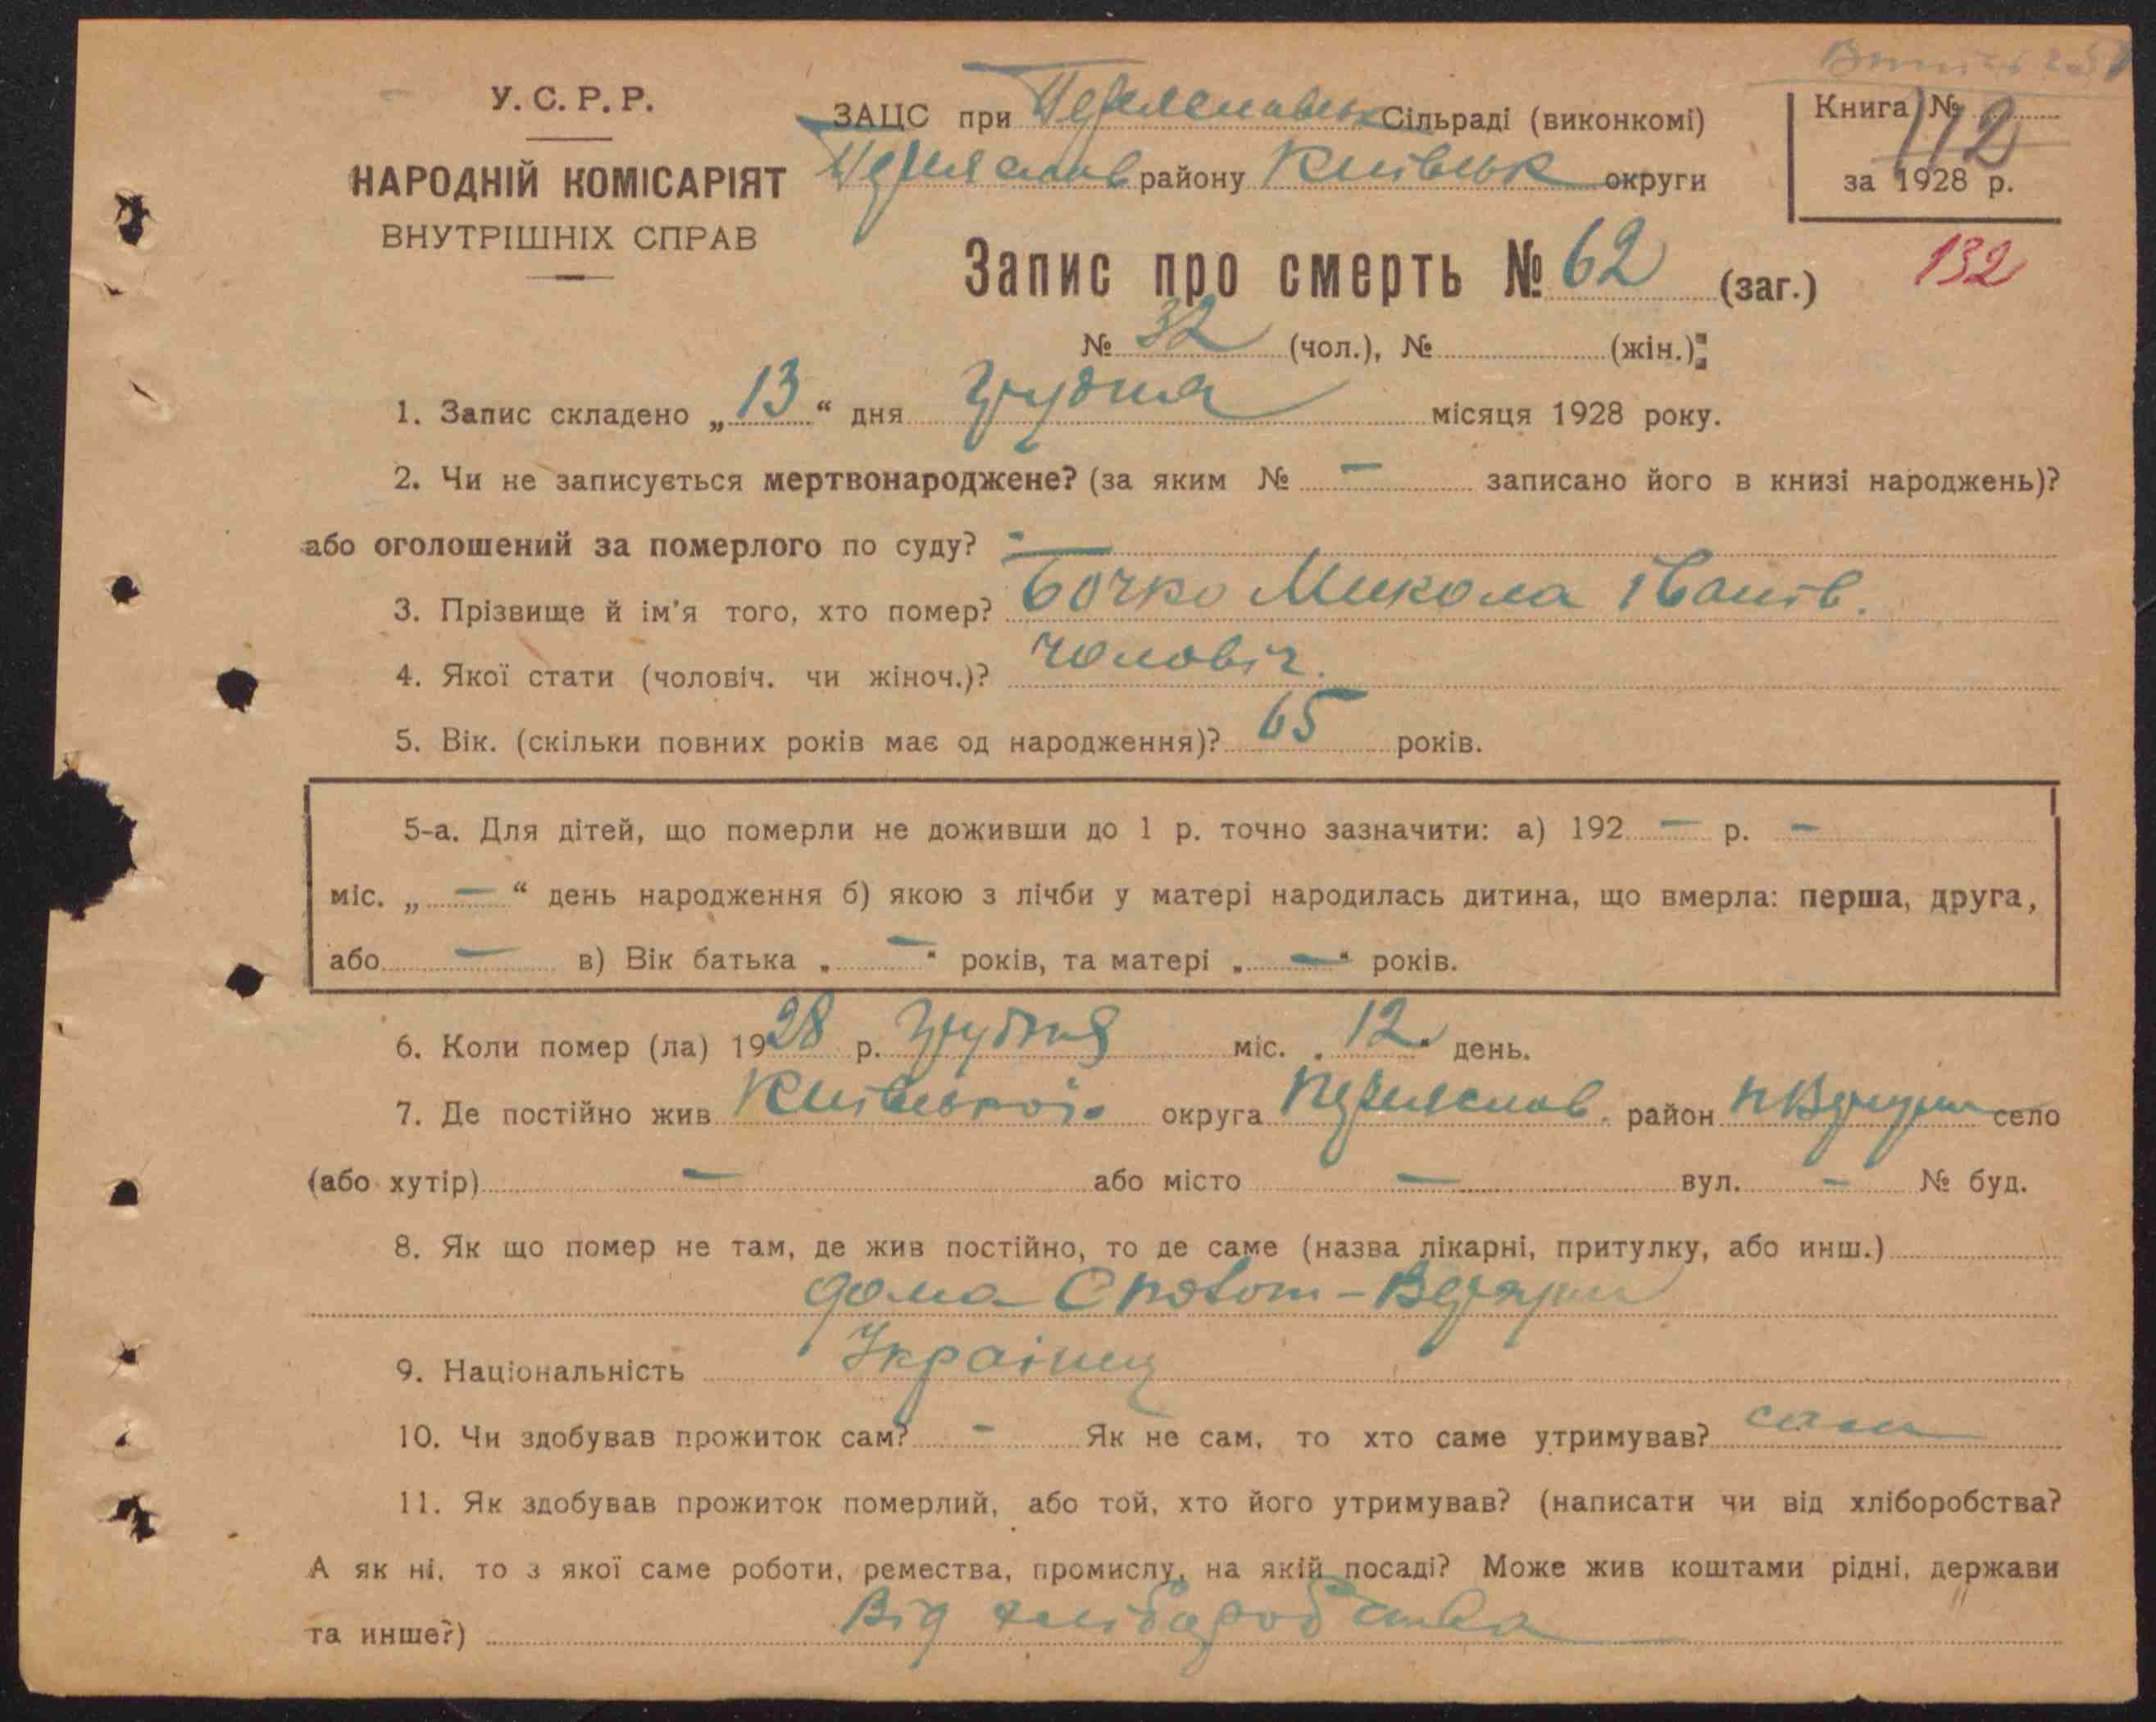 У. С. Р. Р.
НАРОДНІЙ КОМІСАРІЯТ
ВНУТРІШНІХ СПРАВ
ЗАЦС при Переяславськ Сільраді (виконкомі)
Переяслав району Київськ округи
Книга № 112
за 1928 р.
132
Запис про смерть № 62 (заг.)
№ 32 (чол.), № (жін.):
1. Запис складено „13“ дня грудня місяця 1928 року.
2. Чи не записується мертвонароджене? (за яким № — записано його в книзі народжень)?
або оголошений за померлого по суду? —
3. Прізвище й ім'я того, хто помер? Бочко Микола Іванів.
4. Якої стати (чоловіч. чи жіноч.)? чоловіч.
5. Вік. (скільки повних років має од народження)? 65 років.
5-а. Для дітей, що померли не доживши до 1 р. точно зазначити: а) 192 — р. —
міс. „ — “ день народження б) якою з лічби у матері народилась дитина, що вмерла: перша, друга,
або — в) Вік батька „ — “ років, та матері „ — “ років.
6. Коли помер (ла) 1928 р. грудня міс. „12“ день.
7. Де постійно жив Київської округа Переяслав. район село
(або хутір) — або місто — вул. — № буд.
8. Як що помер не там, де жив постійно, то де саме (назва лікарні, притулку, або инш.)
дома
9. Національність Українец
10. Чи здобував прожиток сам? — Як не сам, то хто саме утримував? сам
11. Як здобував прожиток померлий, або той, хто його утримував? (написати чи від хліборобства?
А як ні, то з якої саме роботи, ремества, промислу, на якій посаді? Може жив коштами рідні, держави
та инше?) Від хліборобства